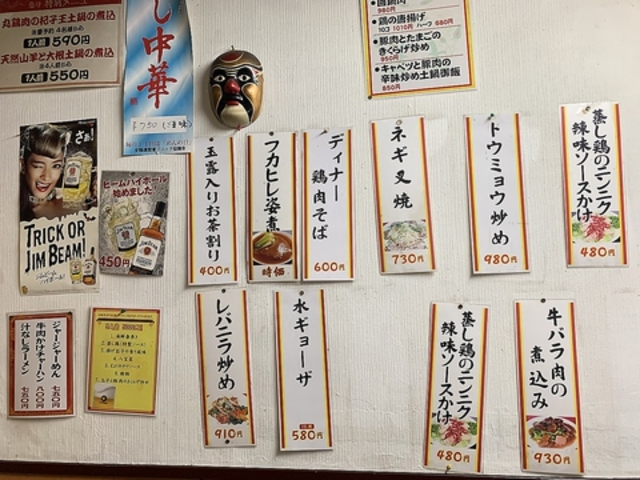 丸鶏肉の杞子王土鍋の煮込
1人前 590円
天然山羊と大根土鍋の煮込
1人前 550円
し中華
¥750
980円
・鶏の唐揚げ
10コ 1010円 ハーフ 680円
・豚肉とたまごの
きくらげ炒め
850円
・キャベツと豚肉の
辛味炒め土鍋御飯
850円
さぁ!
TRICK OR
JIM BEAM!
ビームハイボール
始めました
450円
玉露入りお茶割り
400円
フカヒレ姿煮
時価
ディナー
鶏肉そば
600円
ネギ叉焼
730円
トウミョウ炒め
980円
蒸し鶏のニンニク
辣味ソースかけ
480円
ジャージャーめん 七五〇円
牛肉かけチャーハン 八〇〇円
汁なしラーメン 七五〇円
レバニラ炒め
910円
水ギョーザ
580円
蒸し鶏のニンニク
辣味ソースかけ
480円
牛バラ肉の
煮込み
930円